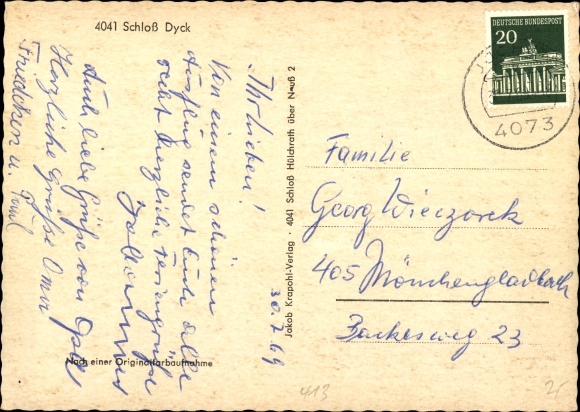 4041 Schloß Dyck
DEUTSCHE BUNDESPOST
20
4073
Ihr Lieben!
Von einem schönen
Ausflug sendet Euch alle
recht herzliche Feriengrüße
Auch liebe Grüße von Opa
Herzliche Grüße Oma
Friedchen u.
30.7.69
Nach einer Originalfarbaufnahme
Jakob Krapohl-Verlag · 4041 Schloß Hülchrath über Neuß 2
Familie
Georg Wieczorek
405 Mönchengladbach
23
413